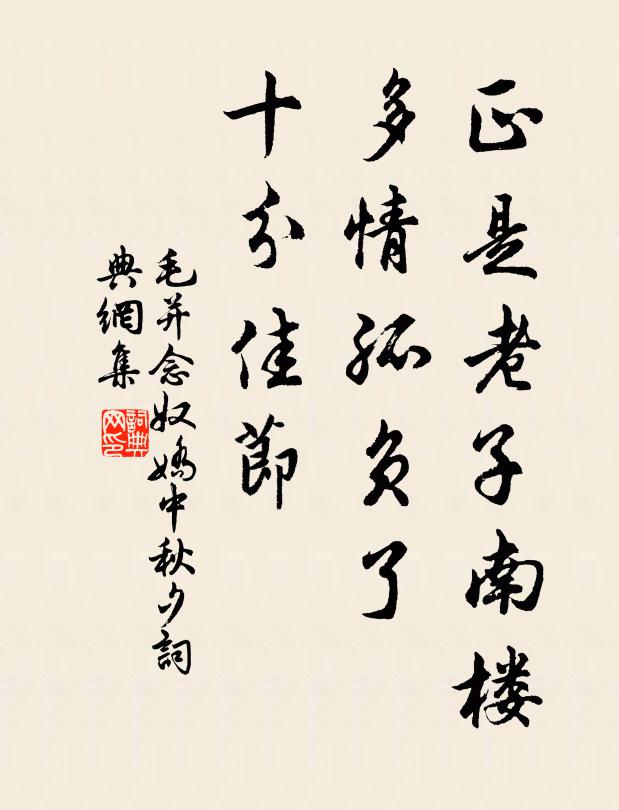 正是老子南楼
多情孤负了
十分佳節
毛并念奴嬌中秋夕詞
典網集
詞典網印